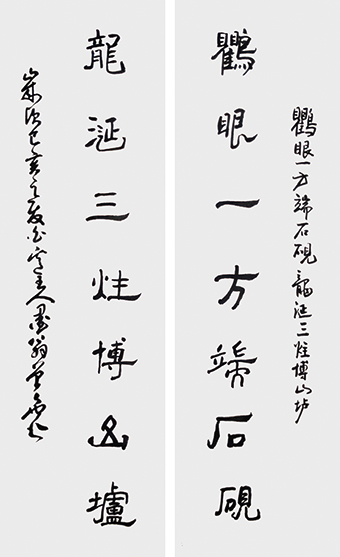 鸜眼一方端石硯龍涎三炷博山垆
鸜眼一方端石硯
龍涎三炷博山壚
歲次己亥之夏主人墨翁